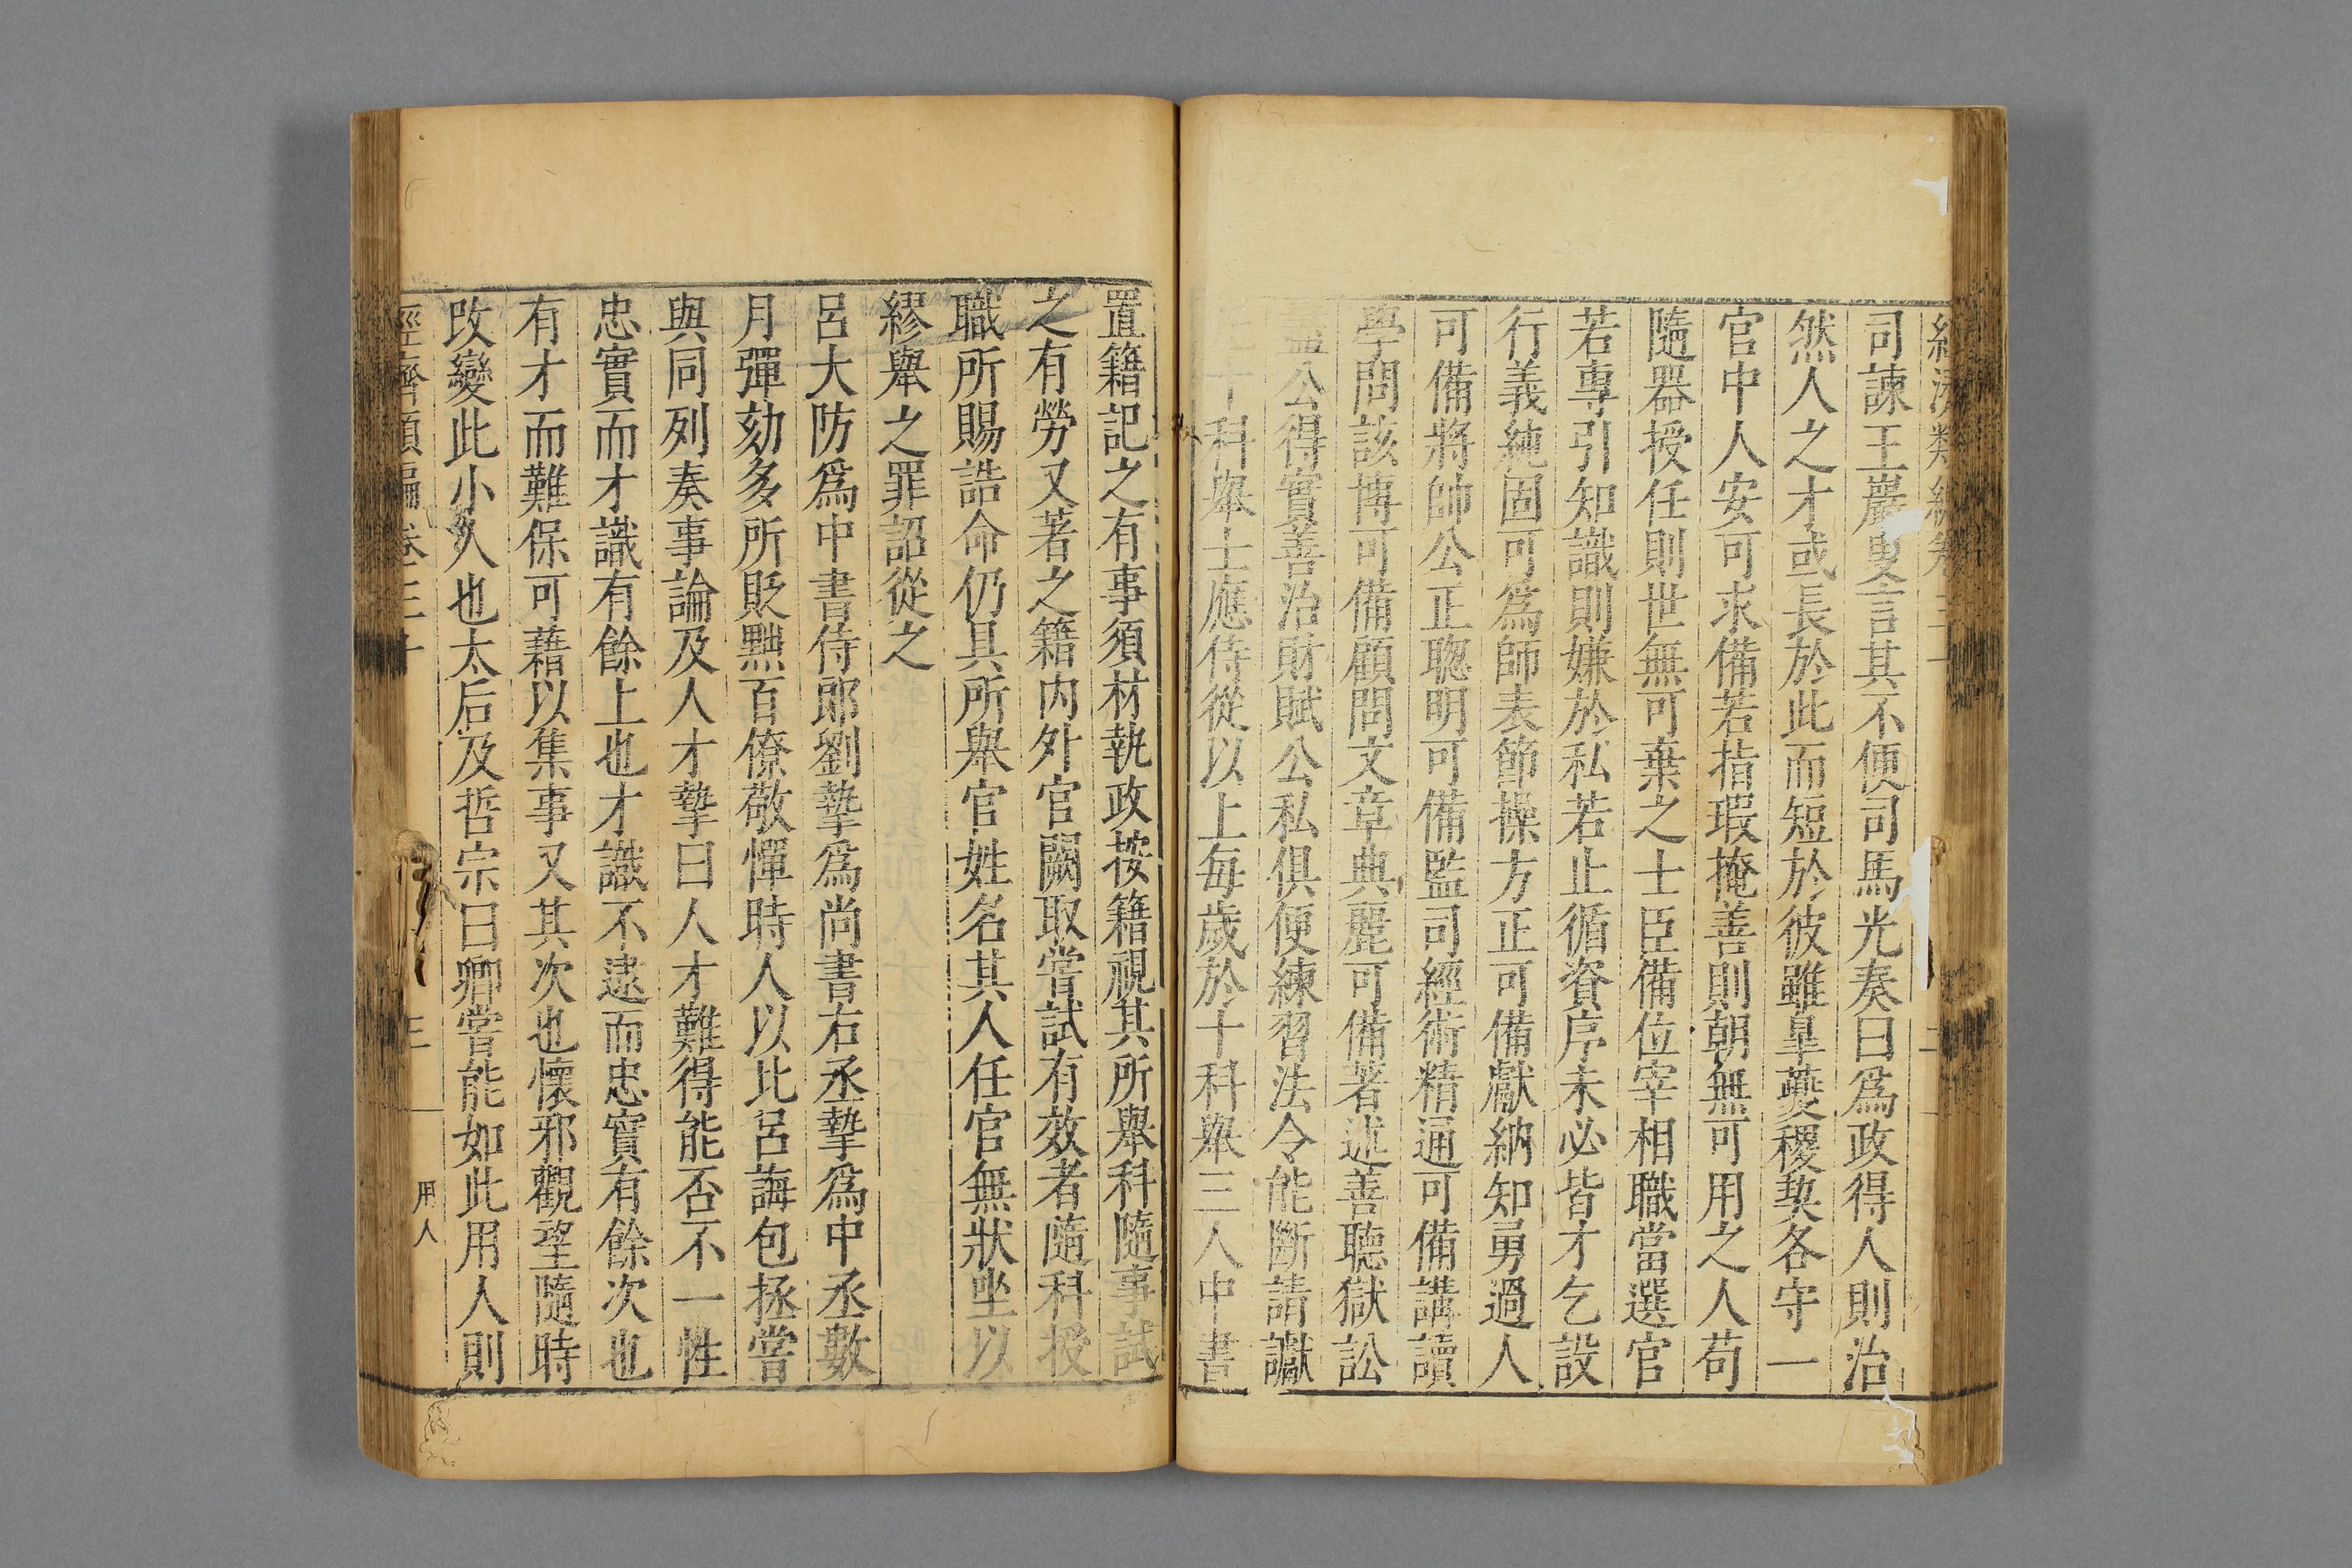 司諫王巖叟言其不便司馬光奏曰爲政得人則治
然人之才或長於此而短於彼雖臯夔稷契各守一
官中人安可求備若指瑕掩善則朝無可用之人苟
隨器授任則世無可棄之士臣備位宰相職當選官
若專引知識則嫌於私若止循資序未必皆才乞設
行義純固可爲師表節操方正可備獻納知勇過人
可備將帥公正聰明可備監司經術精通可備講讀
學問該博可備顧問文章典麗可備著述善聽獄訟
盡公得實善治財賦公私俱便練習法令能斷請讞
科舉士應侍從以上每歲於十科舉三人中書
置籍記之有事須材執政按籍視其所舉科隨事試
之有勞又著之籍内外官闕取嘗試有效者隨科授
職所賜誥命仍具所舉官姓名其人任官無狀坐以
繆舉之罪詔從之
呂大防爲中書侍郎劉摯爲尚書右丞摯爲中丞數
月彈劾多所貶黜百僚敬憚時人以比呂誨包拯嘗
與同列奏事論及人才摯曰人才難得能否不一性
忠實而才識有餘上也才識不逮而忠實有餘次也
有才而難保可藉以集事又其次也懷邪觀望隨時
改變此小人也太后及哲宗曰卿嘗能如此用人則
經濟類編卷三十 三 用人